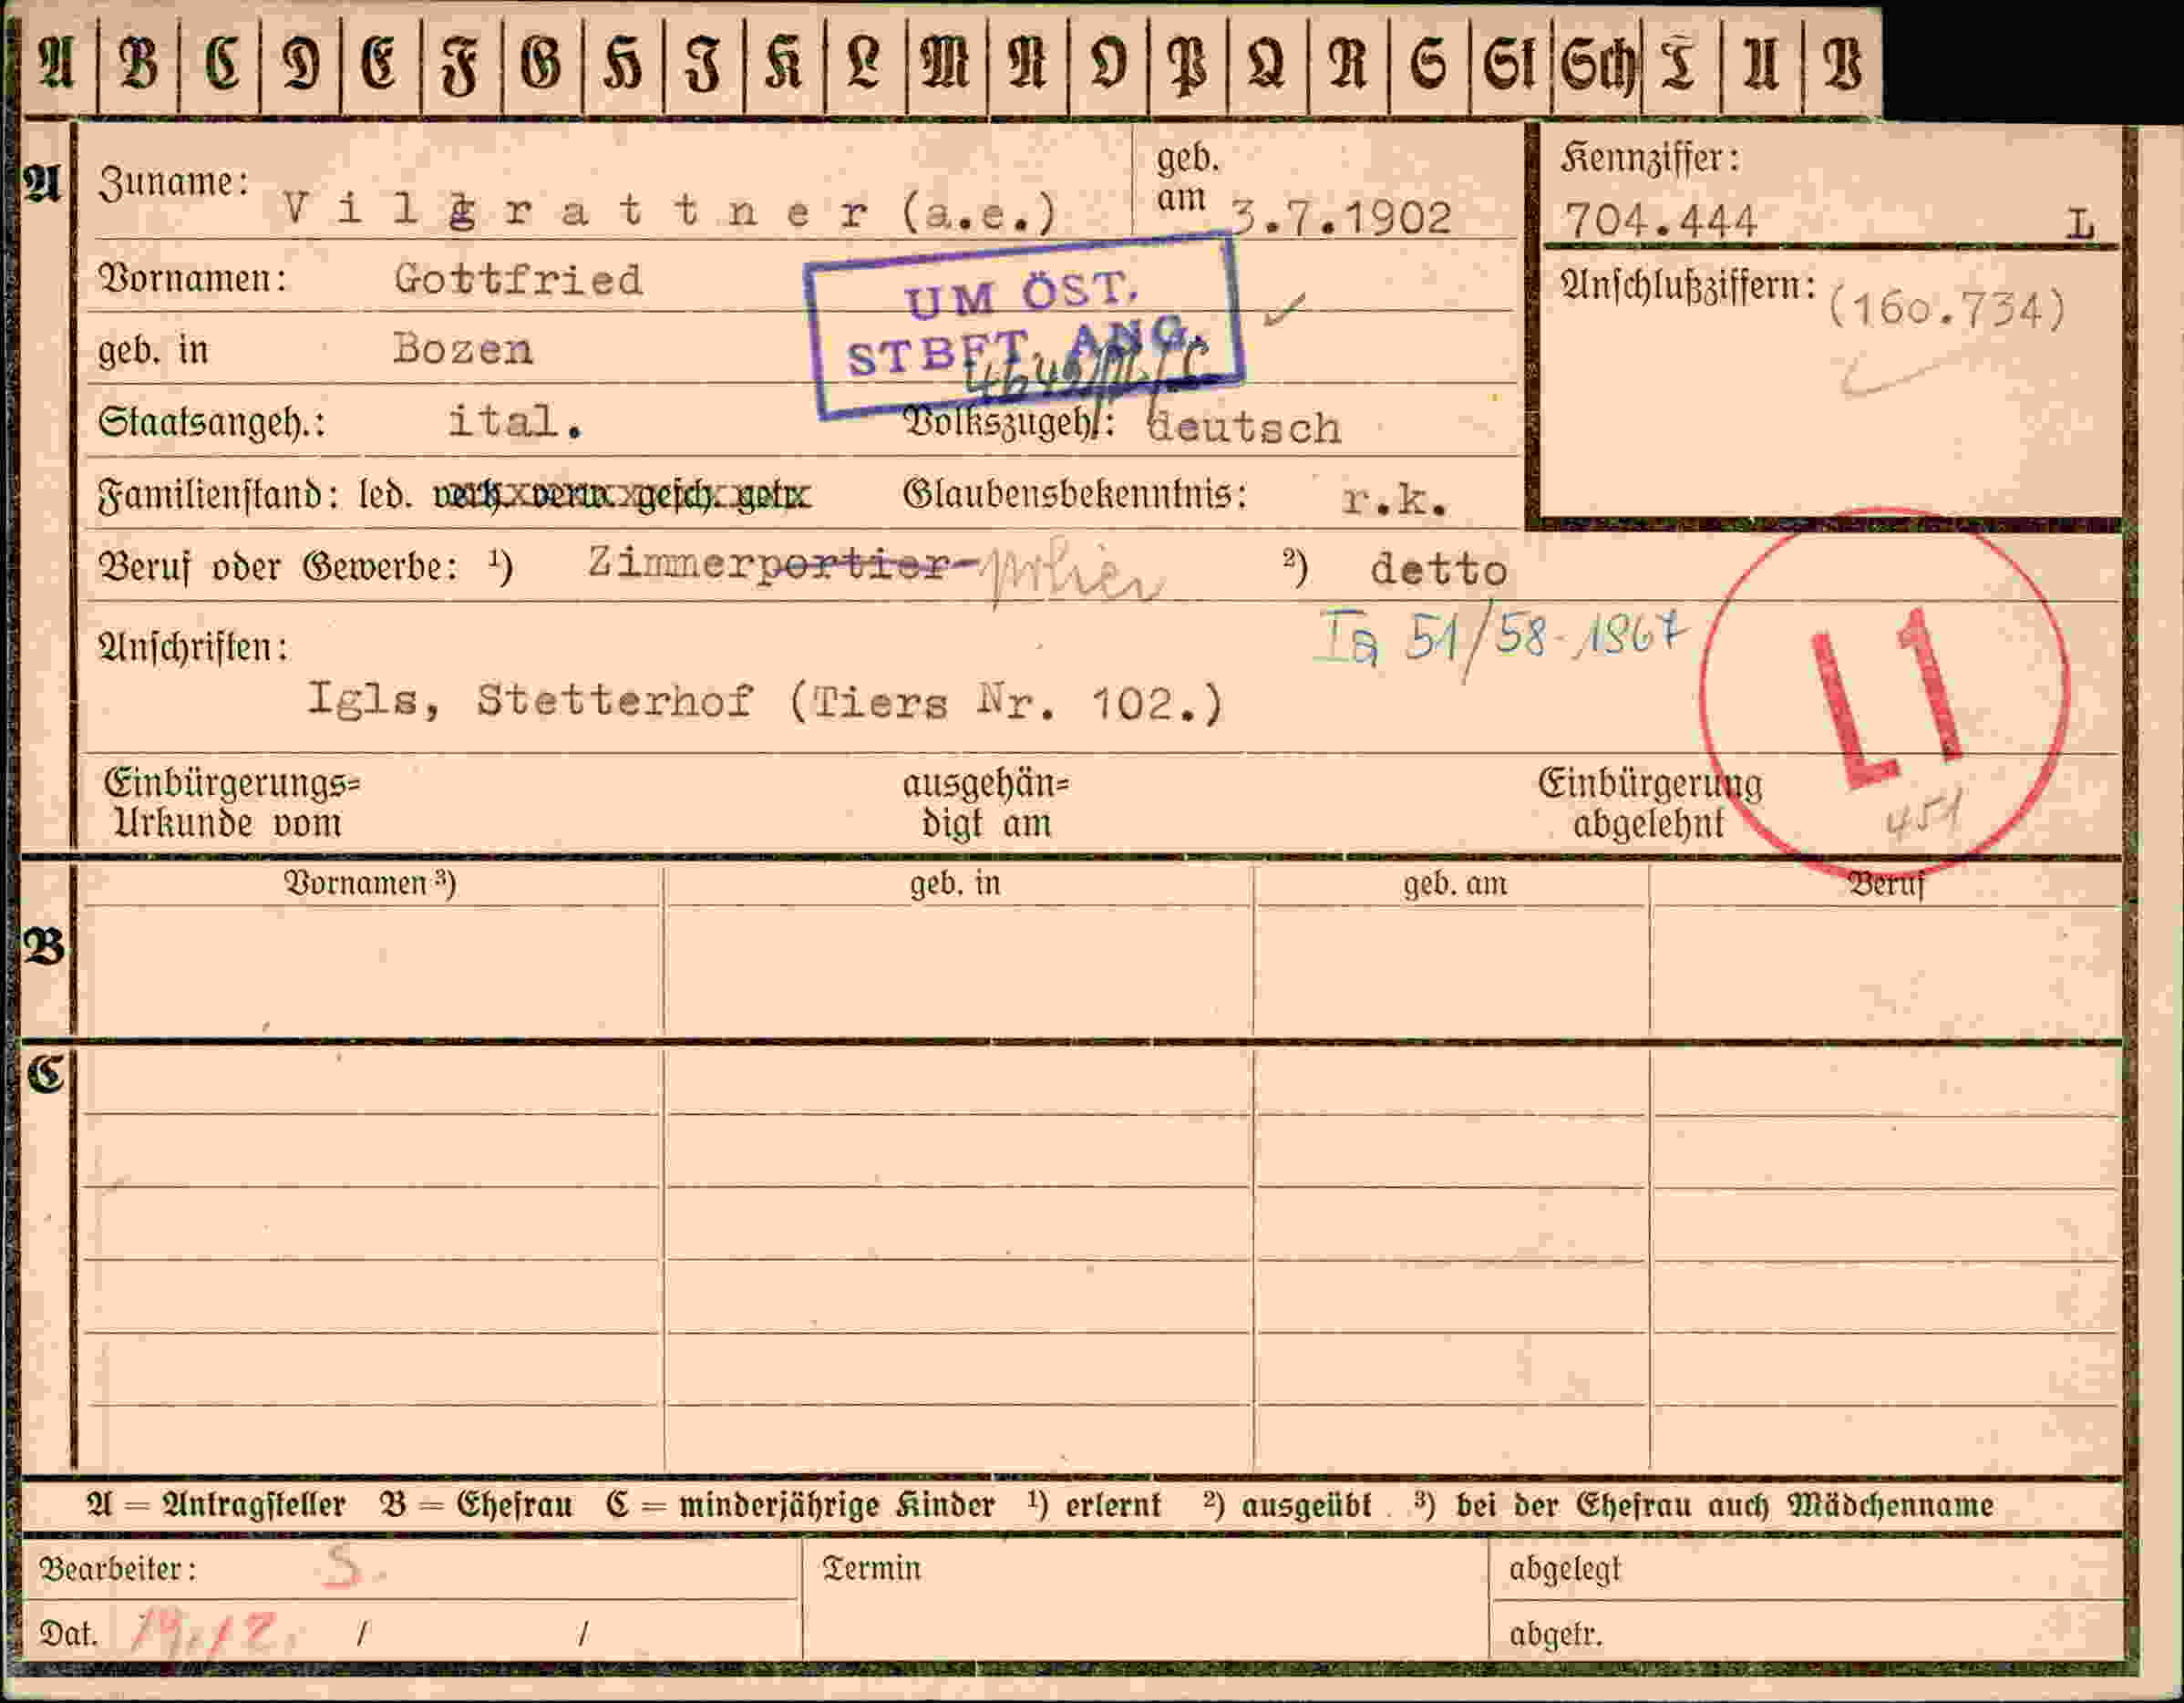 A B C D E F G H I K L M N O P Q R S St Sch T U V
A Zuname: Vilgrattner (a.e.) geb. am 3.7.1902 Kennziffer: 704.444 L
Vornamen: Gottfried
UM ÖST.
STBFT. ANG.
Anschlußziffern: (160.734)
geb. in Bozen
Staatsangeh.: ital. Volkszugeh.: deutsch
Familienstand: led. verh. verw. gesch. getr. Glaubensbekenntnis: r.k.
Beruf oder Gewerbe: ¹) Zimmerportier- polier ²) detto
Anschriften: Ia 51/58-1967
L1
Igls, Stetterhof (Tiers Nr. 102.)
Einbürgerungs= ausgehän= Einbürgerung
Urkunde vom digt am abgelehnt 451
Vornamen ³) geb. in geb. am Beruf
B
C
A = Antragsteller B = Ehefrau C = minderjährige Kinder ¹) erlernt ²) ausgeübt ³) bei der Ehefrau auch Mädchenname
Bearbeiter: S. Termin abgelegt
Dat. 19.12. / / abgetr.